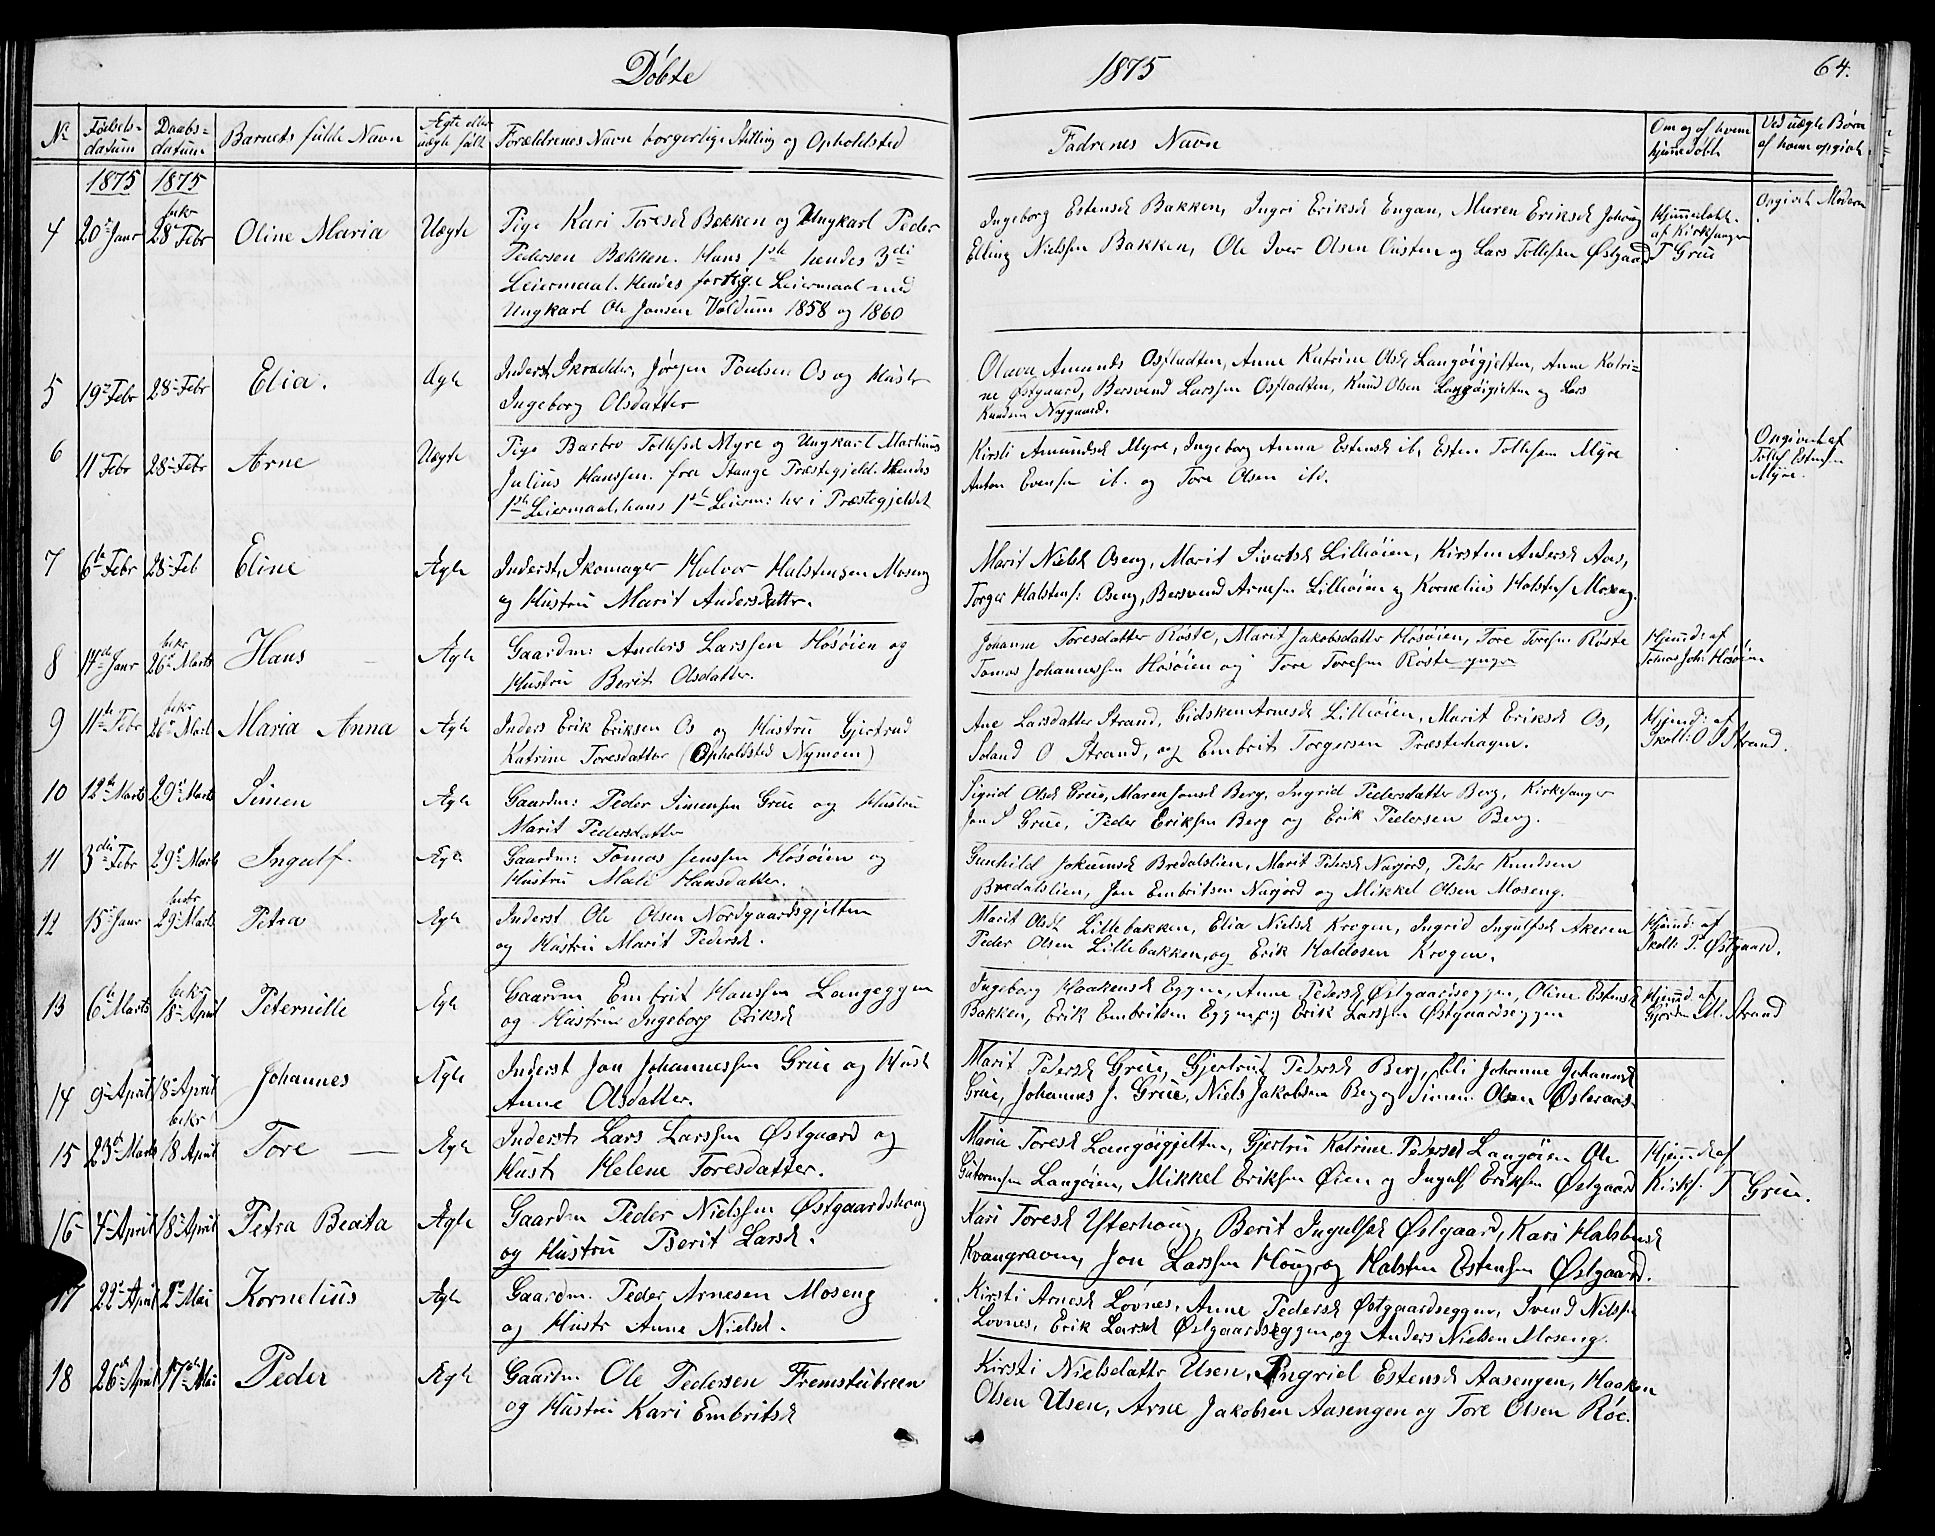 Döbte
1875
64.
No
Födsels-
datum
Daabs-
datum
Barnets fulde Navn
Ægte eller
uægte født
Forældrenes Navn borgerlige Stilling og Opholdsted
Fadrenes Navn
Om og af hvem
hjemmedøbt
Ved uægte Børn
af hvem opgivet
1875
1875
4
20de Janr
bekr
28 Febr
Oline Maria
Uægte
Pige Kari Toresd Bekken og Ungkarl Peder
Pedersen Bekken. Hans 1ste hendes 3die
Leiermaal. Hendes forrige Leiermaal med
Ungkarl Ole Jonsen Voldum 1858 og 1860
Ingeborg Estensd Bakken, Ingri Eriksd Engan, Maren Eriksd
Elling Nielsen Bakken, Ole Iver Olsen og Lars Tollefsen Østgaard
Hjemmedøbt
af Kirkesanger
T Grue
Opgivet Moderen
5
19de Febr
28 Febr
Elia.
Ægte
Inderst, Skrædder, Jørgen Poulsen Os og Hustr
Ingeborg Olsdatter
Olava Amunds Osfladten, Anne Katrine Olsd Langøigjelten, Anne Katri-
ne Østgaard, Bersvend Larssen Osfladten, Knud Olsen Langøigjelten og Lars
Knudsen Nygaard.
6
11 Febr
28 Febr
Arne
Uægte
Pige Barbro Tollefsd Myre og Ungkarl Martinus
Julius Hanssen. fra Stange Præstegjeld. Hendes
1ste Leiermaal, hans 1ste Leierm: her i Præstegjeldet
Kirsti Amundsd Myre, Ingeborg Anna Estensd ib, Esten Tollefsen Myre
Anton Evensen ib. og Tore Olsen ibd.
Opgivet af
Tollef Estensen
Myre.
7
6te Febr
28 Feb
Eline
Ægte
Inderst, Skomager Halvor Halstensen Moseng
og Hustru Marit Andersdattr.
Marit Nielsd Oseng, Marit Sivertsd Lilleøien, Kirsten Andersd Aas,
Torger Halstens: Oseng, Bersvend Arnesen Lilleøien og Kornelius Halstens Moseng.
8
17de Janr
bekr
26 Marts
Hans
Ægte
Gaardm: Anders Larssen Høsøien og
Hustru Berit Olsdatter.
Johanne Toresdatter Røste, Marit Jakobsdatter Høsøien, Tore Toresen Røste
Tomas Johannessen Høsøien og Tore Toresen Røste yngre
Hjemd: af
Tomas Joh: Høsøien
9
11te Febr
bekr
26 Marts
Maria Anna
Ægte
Inders Erik Eriksen Os og Hustru Gjertrud
Katrine Toresdatter (Opholdsted Nymoen)
Ane Larsdatter Strand, Eidsken Arnesd Lilleøien, Marit Eriksd Os,
O Strand, og Embrit Torgersen Præstehagen.
Hjemd: af
Skoll: O Strand.
10
12te Marts
29 Marts
Simen
Ægte
Gaardm: Peder Simensen Grue og Hustru
Marit Pedersdatter
Sigrid Olsd Grue, Maren Jonsd Berg, Ingrid Pedersdatter Berg, Kirkesanger
Jon S Grue, Peder Eriksen Berg og Erik Pedersen Berg.
11
3die Febr
29 Marts
Ingulf.
Ægte
Gaardm: Tomas Jenssen Høsøien og
Hustru Mali Hansdatter.
Gunhild Jokumsd Bredalslien, Marit Petersd Narjord, Peter Knudsen
Bredalslien, Jon Embritsen Narjord og Mikkel Olsen Moseng.
12
15 Janr
bekr
29 Marts
Petra
Ægte
Inderst Ole Olsen Nordgaardsgjelten
og Hustru Marit Pedersd.
Marit Olsd Lillebakken, Elia Nielsd Krogen, Ingrid Ingulfsd Akeren
Peder Olsen Lillebakken, og Erik Haldosen Krogen.
Hjemd: af
Skoll: P. Østgaard.
13
6te Marts
bekr
18 April
Peternille
Ægte
Gaardm Embrit Hanssen Langeggen
og Hustru Ingeborg Eriksd
Ingeborg Haakensd Eggen, Anne Pedersd Østgaardseggen, Oline Estensd
Bakken, Erik Embritsen Eggen og Erik Larssen Østgaardseggen
Hjemd. af
Strand
14
9 April
18 April
Johannes
Ægte
Inderst Jon Johannessen Grue og Hust
Anne Olsdatter.
Marit Pedersd Grue, Gjertrud Pedersd Berg, Eli Johanne Johannsd
Grue, Johannes J. Grue, Niels Jakobsen Berg og Simen Olsen
15
23de Marts
bekr
18 April
Tore
Ægte
Inderst Lars Larssen Østgaard og
Hust Helene Toresdatter.
Maria Toresd Langøigjelten, Gjertru Katrine Pedersd Langøien Ole
Gutormsen Langøien, Mikkel Eriksen Øien og Ingulf Eriksen Østgaard
Hjemd af
Kirks. T Grue.
16
4 April
18 April
Petra Beata
Ægte
Gaardm Peder Nielssen Østgaardshoug
og Hustru Berit Larsd.
Kari Toresd Ytterhoug, Berit Ingulfsd Østgaard, Kari Halstensd
Kvangraven, Jon Larssen Houg, og Halsten Estensen Østgaard.
17
22 April
2 Mai
Kornelius
Ægte
Gaardm. Peder Arnesen Moseng
og Hustr Anne Nielsd.
Kirsti Arnesd Lovnes, Anne Pedersd Østgaardseggen, Svend Nilsen
Lovnes, Erik Larsd Østgaardseggen, og Anders Nielsen Moseng.
18
26de April
17de Mai
Peder
Ægte
Gaardm Ole Pedersen Fremstubreen
og Hustru Kari Embritsd
Kirsti Nielsdatter Usen, Ingried Estensd Aasengen, Haaken
Olsen Usen, Arne Jakobsen Aasengen og Tore Olsen Røe.